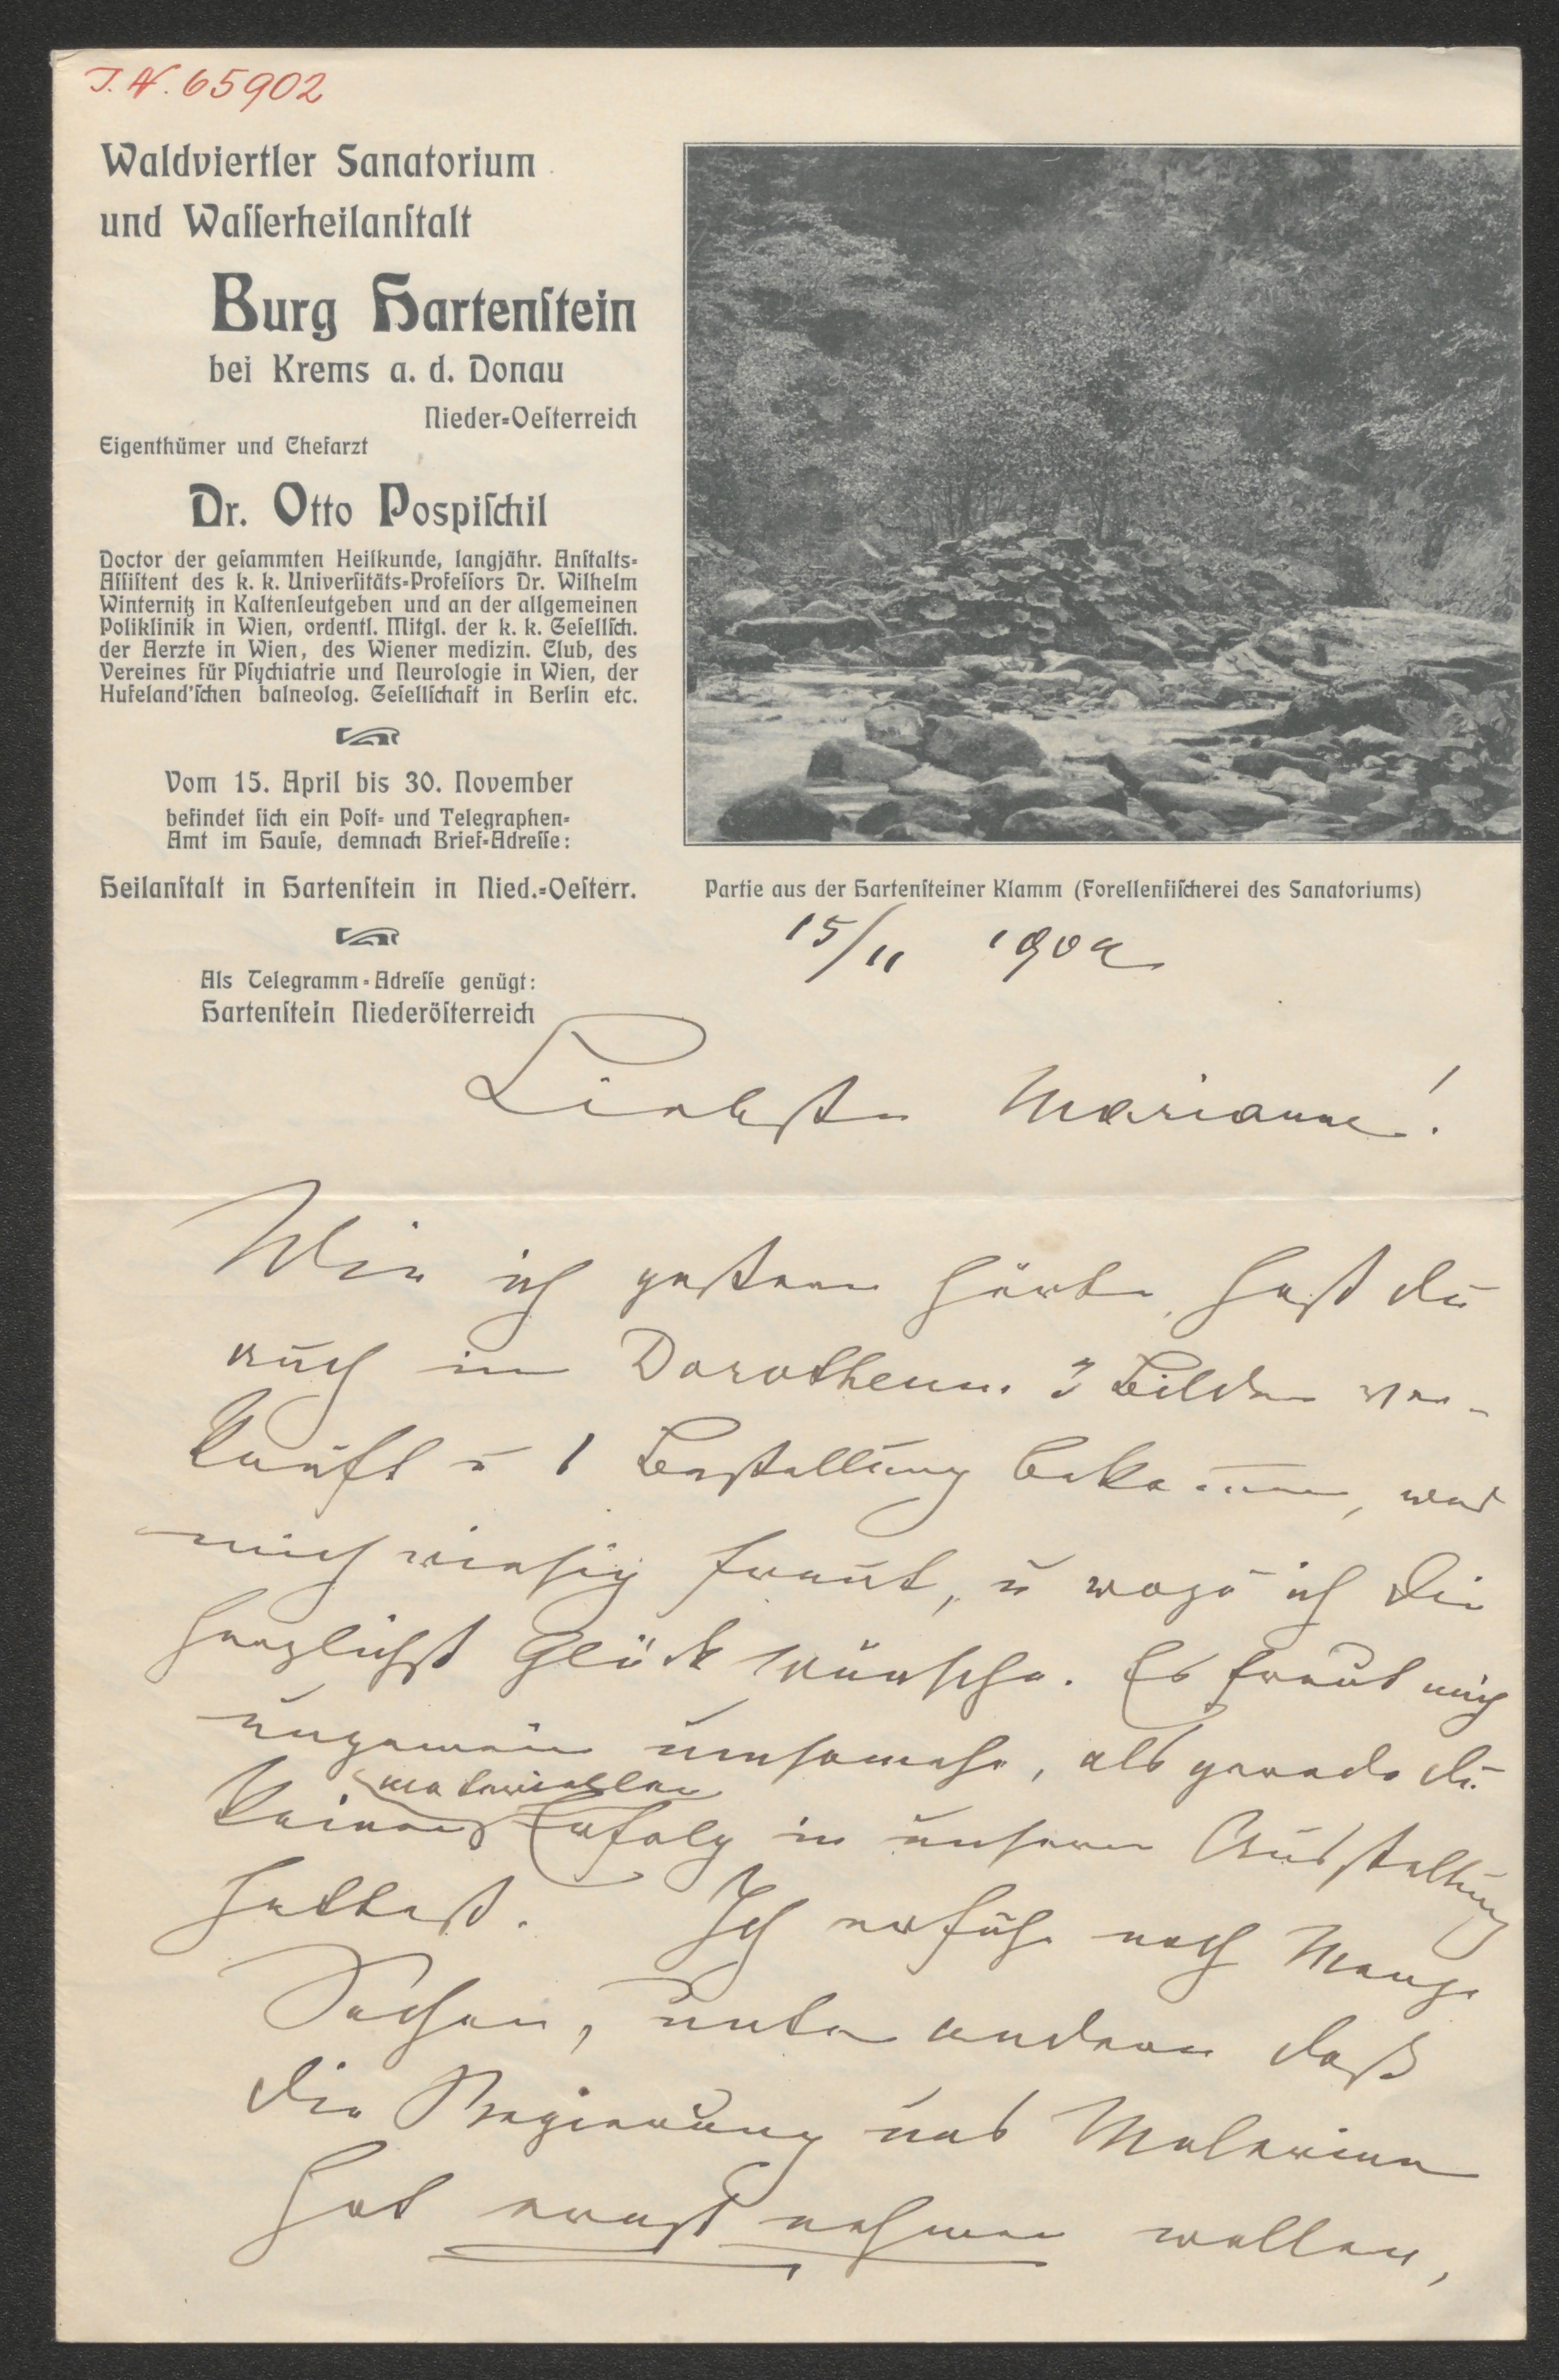 I. N. 65902
Waldviertler Sanatorium
und Waſſerheilanſtalt
Burg Hartenſtein
bei Krems a. d. Donau
Nieder-Oeſterreich
Eigenthümer und Chefarzt
Dr. Otto Poſpiſchil
Doctor der geſammten Heilkunde, langjähr. Anſtalts-
Aſſiſtent des k. k. Univerſitäts-Profeſſors Dr. Wilhelm
Winternitz in Kaltenleutgeben und an der allgemeinen
Poliklinik in Wien, ordentl. Mitgl. der k. k. Geſellſch.
der Aerzte in Wien, des Wiener medizin. Club, des
Vereines für Pſychiatrie und Neurologie in Wien, der
Hufeland'ſchen balneolog. Geſellſchaft in Berlin etc.
Vom 15. April bis 30. November
befindet ſich ein Poſt- und Telegraphen-
Amt im Hauſe, demnach Brief-Adreſſe:
Heilanſtalt in Hartenſtein in Nied.-Oeſterr.
Als Telegramm-Adreſſe genügt:
Hartenſtein Niederöſterreich
Partie aus der Hartenſteiner Klamm (Forellenfiſcherei des Sanatoriums)
15/11 190
Liebste Marianne!
Wie ich gestern hörte, hast du
auch im Dorotheum 3 Bilder ver-
kauft u 1 Bestellung bekommen, was
mich riesig freut, u wozu ich Dir
herzlichst Glück wünsche. Es freut mich
ungemein umsomehr, als gerade du
keinen materiellen Erfolg in unserer Ausstellung
hattest. Ich erfuhr noch Mange
Sachen, unter andern daß
die Regierung uns Malerinen
hat ernst nehmen wollen,